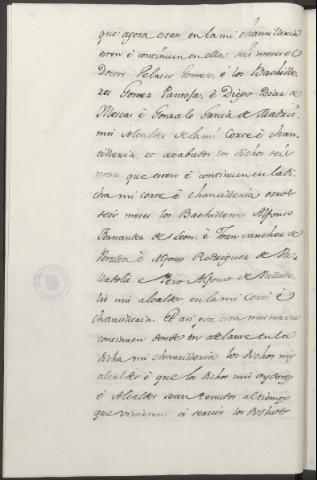 que agora estan en la mi chancilleria
esten è continuen en ella seis meses el
Doctor Velasco Gomez, è los Bachille-
res Gomez Pantoja, è Diego Diaz de
Mescas è Gonzalo Garcia de Madrid
mis Alcaldes de la mi Corte è chan-
cilleria, et acabados los dichos seis
meses que esten è continuen en la di-
cha mi corte è chancilleria otros
seis meses los Bachilleres Alfonso
Fernandez de Leon, è Joan sanchez de
è Alfonso Rodriguez de Va-
lladolid e Pero Alfonso de Vallado-
lid mis alcaldes en la mi Corte è
chancilleria. Et asi por esta mesma via
continuen dende en adelante en la
dicha mi chancilleria los dichos mis
alcaldes è que los dichos mis oydores
è Alcaldes sean tenudos al tiempo
que vinieren à servir los dichos